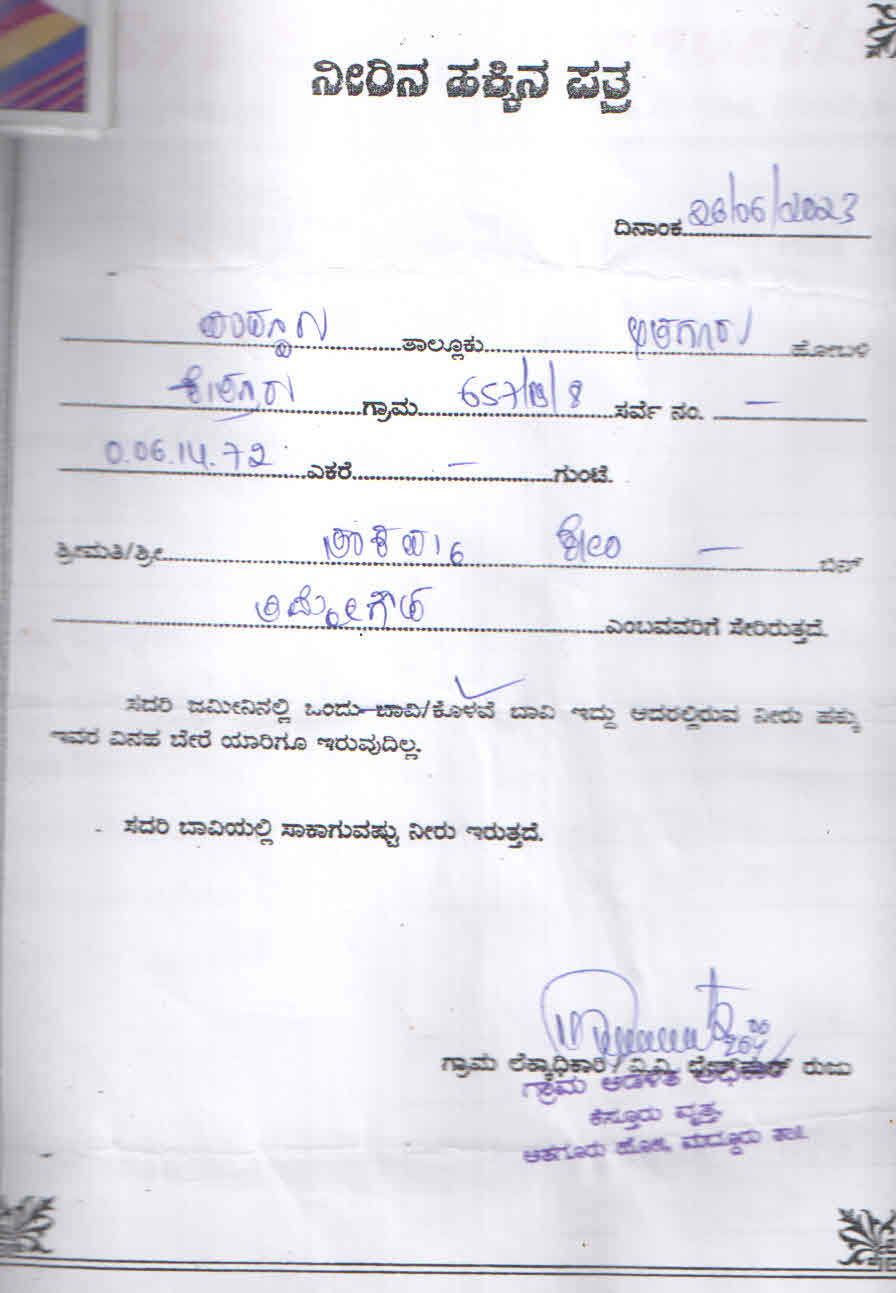 ನೀರಿನ ಹಕ್ಕಿನ ಪತ್ರ
ದಿನಾಂಕ 26/06/2023
ಮದ್ದೂರು ತಾಲ್ಲೂಕು ಆತಗೂರು ಹೋಬಳಿ
ಗ್ರಾಮ 657 / 8 ಸರ್ವೆ ನಂ. —
0.06.14.72 ಎಕರೆ — ಗುಂಟೆ.
ಶ್ರೀಮತಿ/ಶ್ರೀ — ಬಿನ್
ತಿಮ್ಮೇಗೌಡ ಎಂಬವವರಿಗೆ ಸೇರಿರುತ್ತದೆ.
ಸದರಿ ಜಮೀನಿನಲ್ಲಿ ಒಂದು ಬಾವಿ/ಕೊಳವೆ ಬಾವಿ ಇದ್ದು ಅದರಲ್ಲಿರುವ ನೀರು ಹಕ್ಕು
ಇವರ ವಿನಹ ಬೇರೆ ಯಾರಿಗೂ ಇರುವುದಿಲ್ಲ.
ಸದರಿ ಬಾವಿಯಲ್ಲಿ ಸಾಕಾಗುವಷ್ಟು ನೀರು ಇರುತ್ತದೆ.
ಗ್ರಾಮ ಲೆಕ್ಕಾಧಿಕಾರಿ / ರುಜು
ಗ್ರಾಮ ಆಡಳಿತ ಅಧಿಕಾರಿ
ಕೆಸ್ತೂರು ವೃತ್ತ,
ಆತಗೂರು ಹೋಬಳಿ, ಮದ್ದೂರು ತಾ||